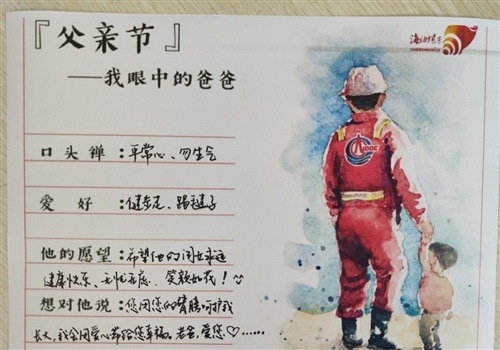 『父亲节』
——我眼中的爸爸
口头禅：平常心、勿生气
爱好：健步走、踢毽子
他的愿望：希望他的闺女永远
健康快乐、无忧无虑、笑颜如花！
想对他说：您用您的臂膀呵护我
长大，我会用爱心带给您幸福。老爸，爱您♡……
COOEC